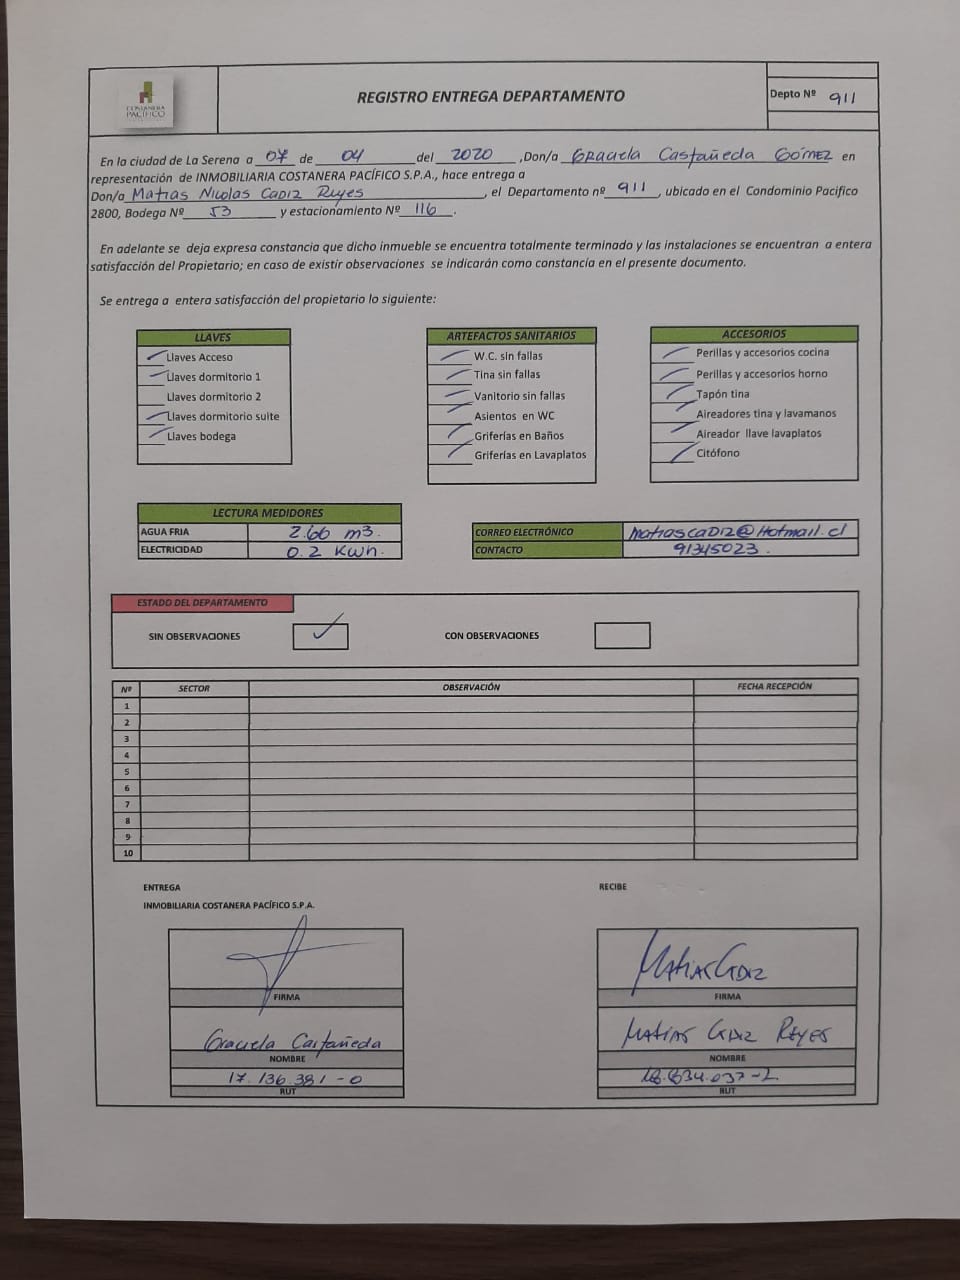 COSTANERA
PACÍFICO
REGISTRO ENTREGA DEPARTAMENTO
Depto Nº 911
En la ciudad de La Serena a 07 de 04 del 2020, Don/a Graciela Castañeda Gómez en
representación de INMOBILIARIA COSTANERA PACÍFICO S.P.A., hace entrega a
Don/a Matias Nicolas Cadiz Reyes, el Departamento nº 911, ubicado en el Condominio Pacifico
2800, Bodega Nº 53 y estacionamiento Nº 116.
En adelante se deja expresa constancia que dicho inmueble se encuentra totalmente terminado y las instalaciones se encuentran a entera
satisfacción del Propietario; en caso de existir observaciones se indicarán como constancia en el presente documento.
Se entrega a entera satisfacción del propietario lo siguiente:
LLAVES
Llaves Acceso
Llaves dormitorio 1
Llaves dormitorio 2
Llaves dormitorio suite
Llaves bodega
ARTEFACTOS SANITARIOS
W.C. sin fallas
Tina sin fallas
Vanitorio sin fallas
Asientos en WC
Griferías en Baños
Griferías en Lavaplatos
ACCESORIOS
Perillas y accesorios cocina
Perillas y accesorios horno
Tapón tina
Aireadores tina y lavamanos
Aireador llave lavaplatos
Citófono
LECTURA MEDIDORES
AGUA FRIA 2.66 m3.
ELECTRICIDAD 0.2 Kwh.
CORREO ELECTRÓNICO matiascadiz@Hotmail.cl
CONTACTO 91345023.
ESTADO DEL DEPARTAMENTO
SIN OBSERVACIONES
CON OBSERVACIONES
Nº SECTOR OBSERVACIÓN FECHA RECEPCIÓN
1
2
3
4
5
6
7
8
9
10
ENTREGA
INMOBILIARIA COSTANERA PACÍFICO S.P.A.
FIRMA
Graciela Castañeda
NOMBRE
17.136.381-0
RUT
RECIBE
Matias Cadiz
FIRMA
Matias Cadiz Reyes
NOMBRE
RUT